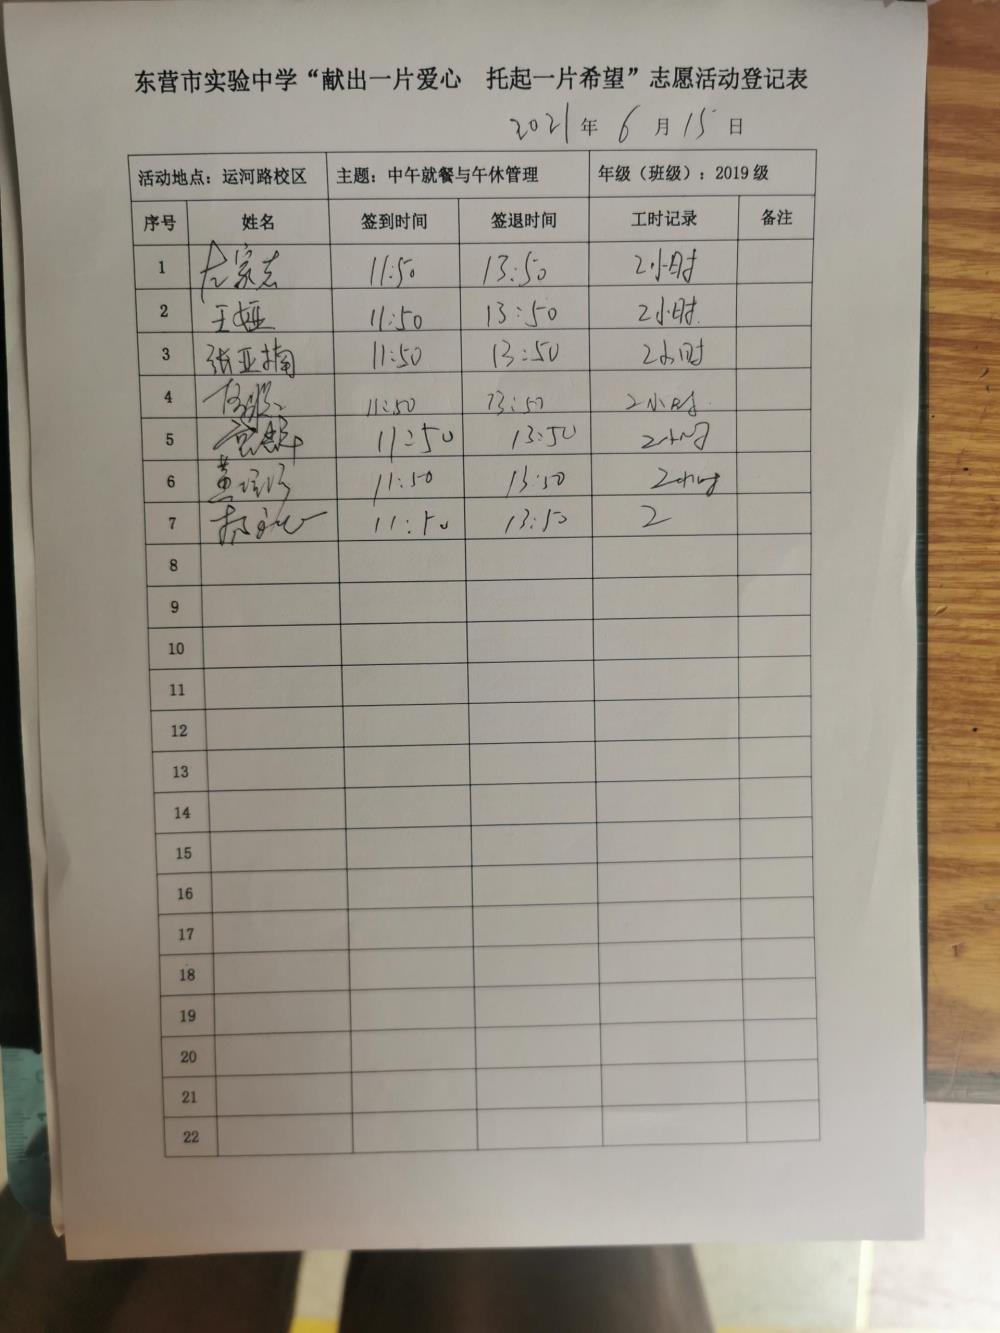 东营市实验中学“献出一片爱心 托起一片希望”志愿活动登记表
2021年 6月15日
活动地点：运河路校区 主题：中午就餐与午休管理 年级（班级）：2019级
序号 姓名 签到时间 签退时间 工时记录 备注
1 左家志 11:50 13:50 2小时
2 王娅 11:50 13:50 2小时
3 张亚楠 11:50 13:50 2小时
4 11:50 13:50 2小时
5 11:50 13:50 2小时
6 黄 11:50 13:50 2小时
7 11:50 13:50 2
8
9
10
11
12
13
14
15
16
17
18
19
20
21
22